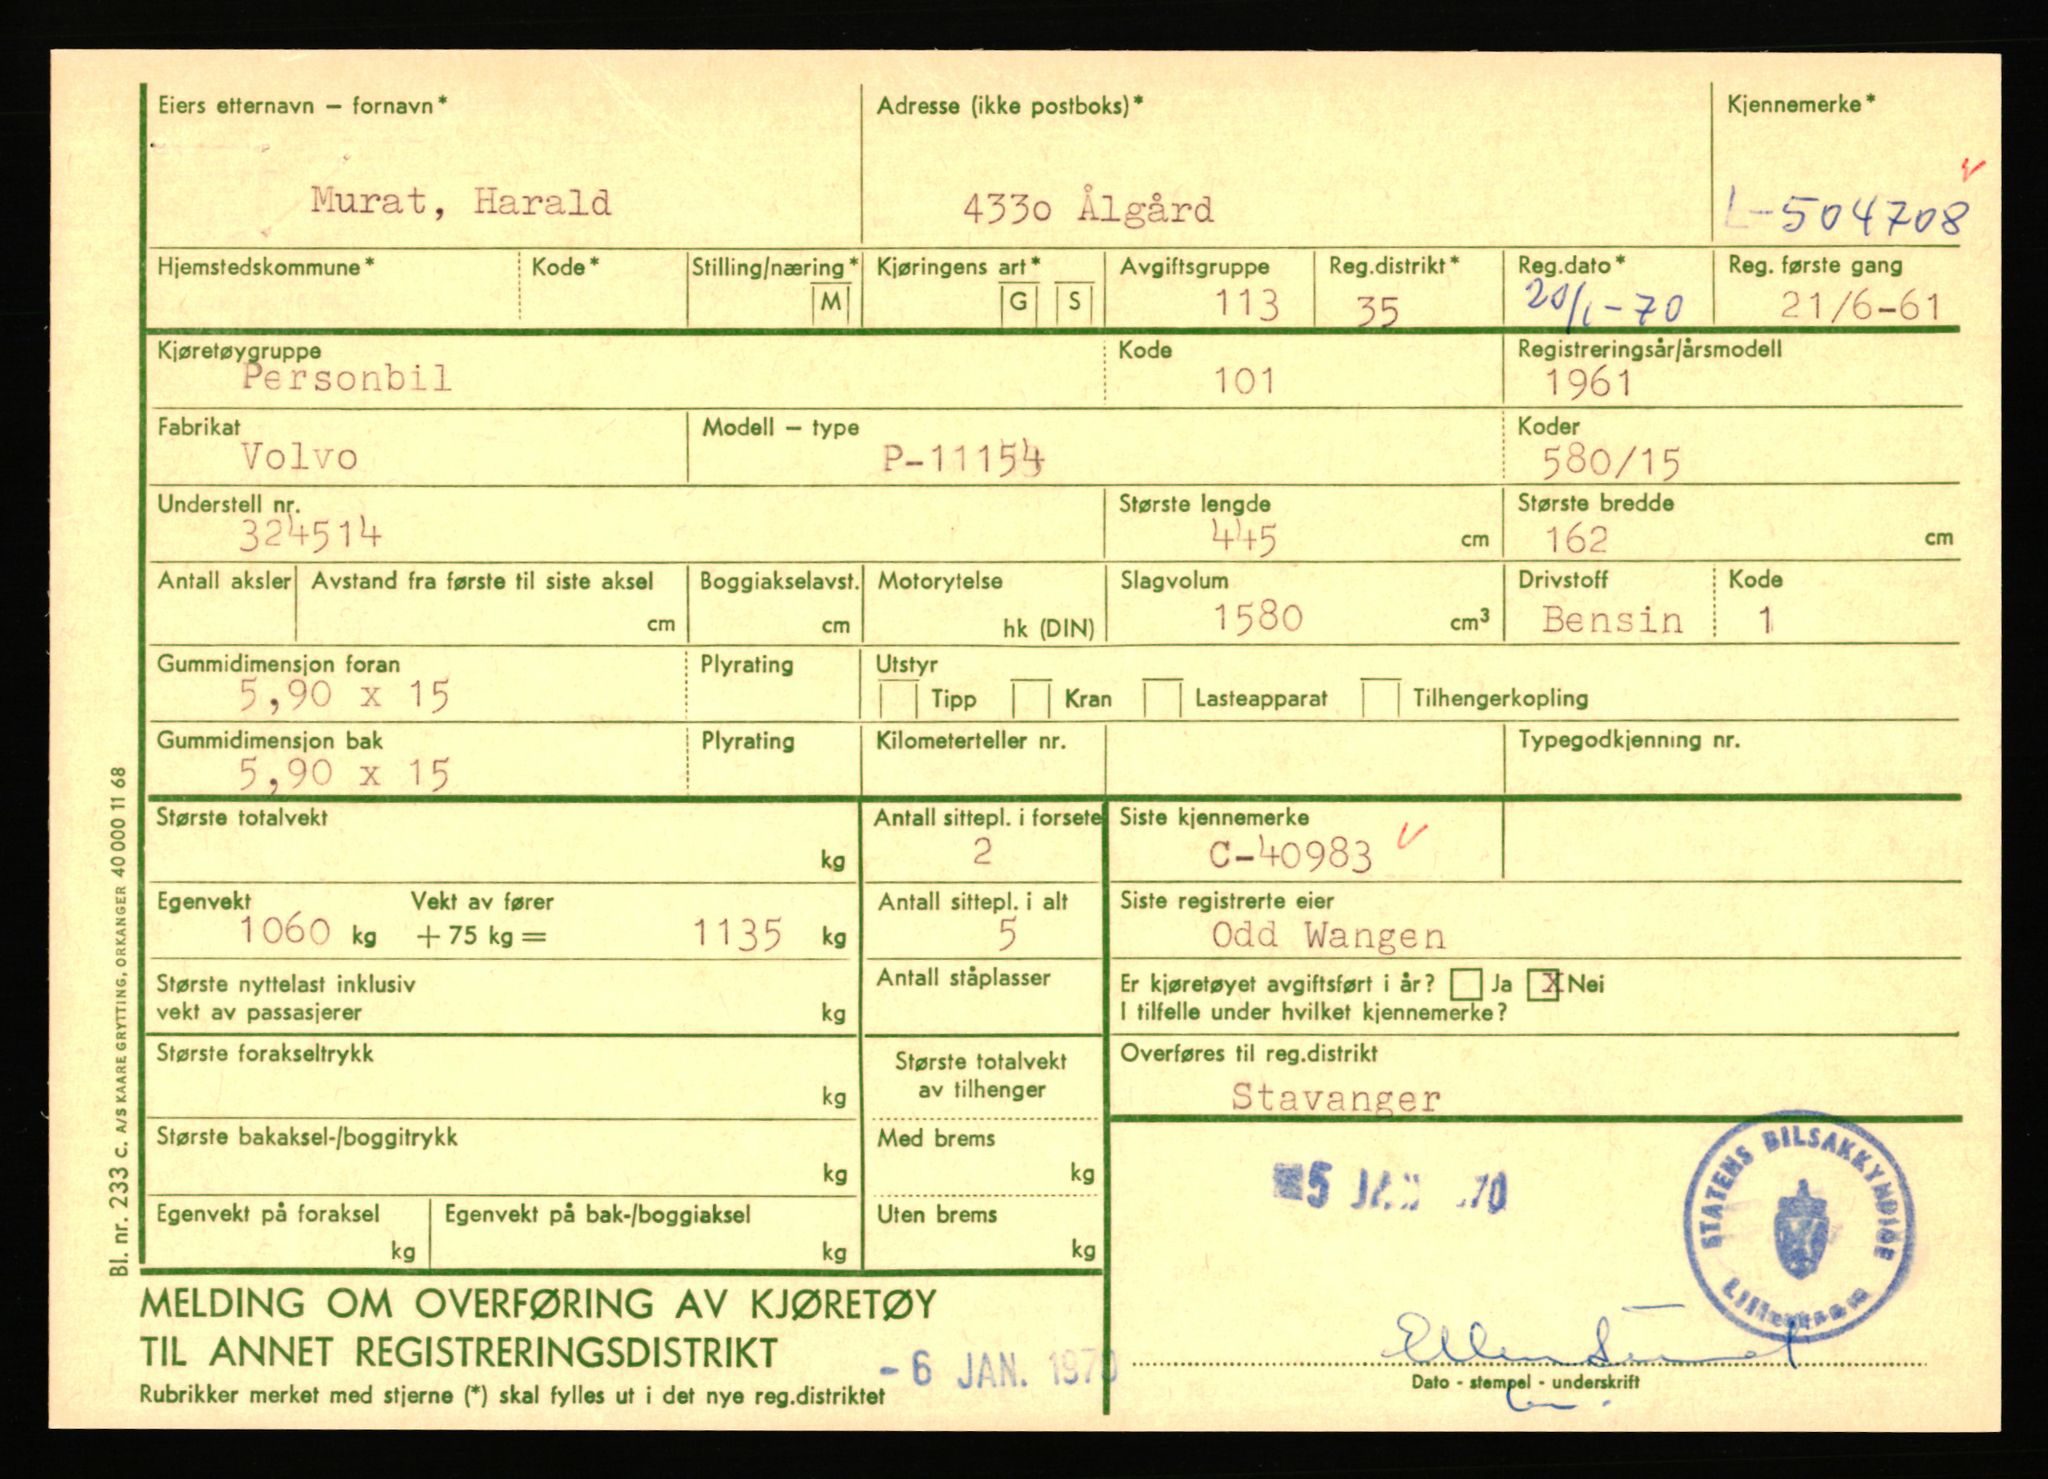 Eiers etternavn – fornavn* Adresse (ikke postboks)* Kjennemerke*
Murat, Harald 4330 Ålgård L-504708
Hjemstedskommune* Kode* Stilling/næring* Kjøringens art* Avgiftsgruppe Reg.distrikt* Reg.dato* Reg. første gang
M G S 113 35 20/1-70 21/6-61
Kjøretøygruppe Kode Registreringsår/årsmodell
Personbil 101 1961
Fabrikat Modell – type Koder
Volvo P-11154 580/15
Understell nr. Største lengde Største bredde
324514 445 cm 162 cm
Antall aksler Avstand fra første til siste aksel Boggiakselavst. Motorytelse Slagvolum Drivstoff Kode
cm cm hk (DIN) 1580 cm3 Bensin 1
Gummidimensjon foran Plyrating Utstyr
5,90 x 15 Tipp Kran Lasteapparat Tilhengerkopling
Gummidimensjon bak Plyrating Kilometerteller nr. Typegodkjenning nr.
5,90 x 15
Største totalvekt Antall sittepl. i forsete Siste kjennemerke
kg 2 C-40983
Egenvekt Vekt av fører Antall sittepl. i alt Siste registrerte eier
1060 kg + 75 kg = 1135 kg 5 Odd Wangen
Største nyttelast inklusiv Antall ståplasser Er kjøretøyet avgiftsført i år? Ja X Nei
vekt av passasjerer kg I tilfelle under hvilket kjennemerke?
Største forakseltrykk Største totalvekt Overføres til reg.distrikt
kg av tilhenger Stavanger
Største bakaksel-/boggitrykk Med brems
kg kg
5 70
STATENS BILSAKKYNDIGE
Lillehammer
Egenvekt på foraksel Egenvekt på bak-/boggiaksel Uten brems
kg kg kg
MELDING OM OVERFØRING AV KJØRETØY
TIL ANNET REGISTRERINGSDISTRIKT
- 6 JAN. 1970
Ellen
Rubrikker merket med stjerne (*) skal fylles ut i det nye reg.distriktet
Dato - stempel - underskrift
Bl. nr. 233 c. A/S KAARE GRYTTING, ORKANGER 40 000 11 68